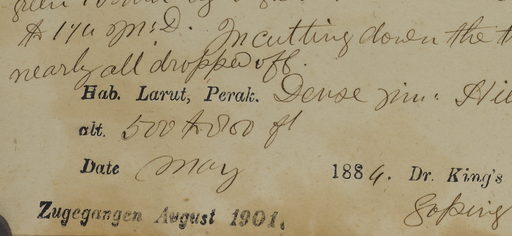 In cutting down the
nearly all dropped off.
Hab. Larut, Perak. Dense
alt. 500 to 800 ft
Date May 1884. Dr. King's
Goping
Zugegangen August 1901.